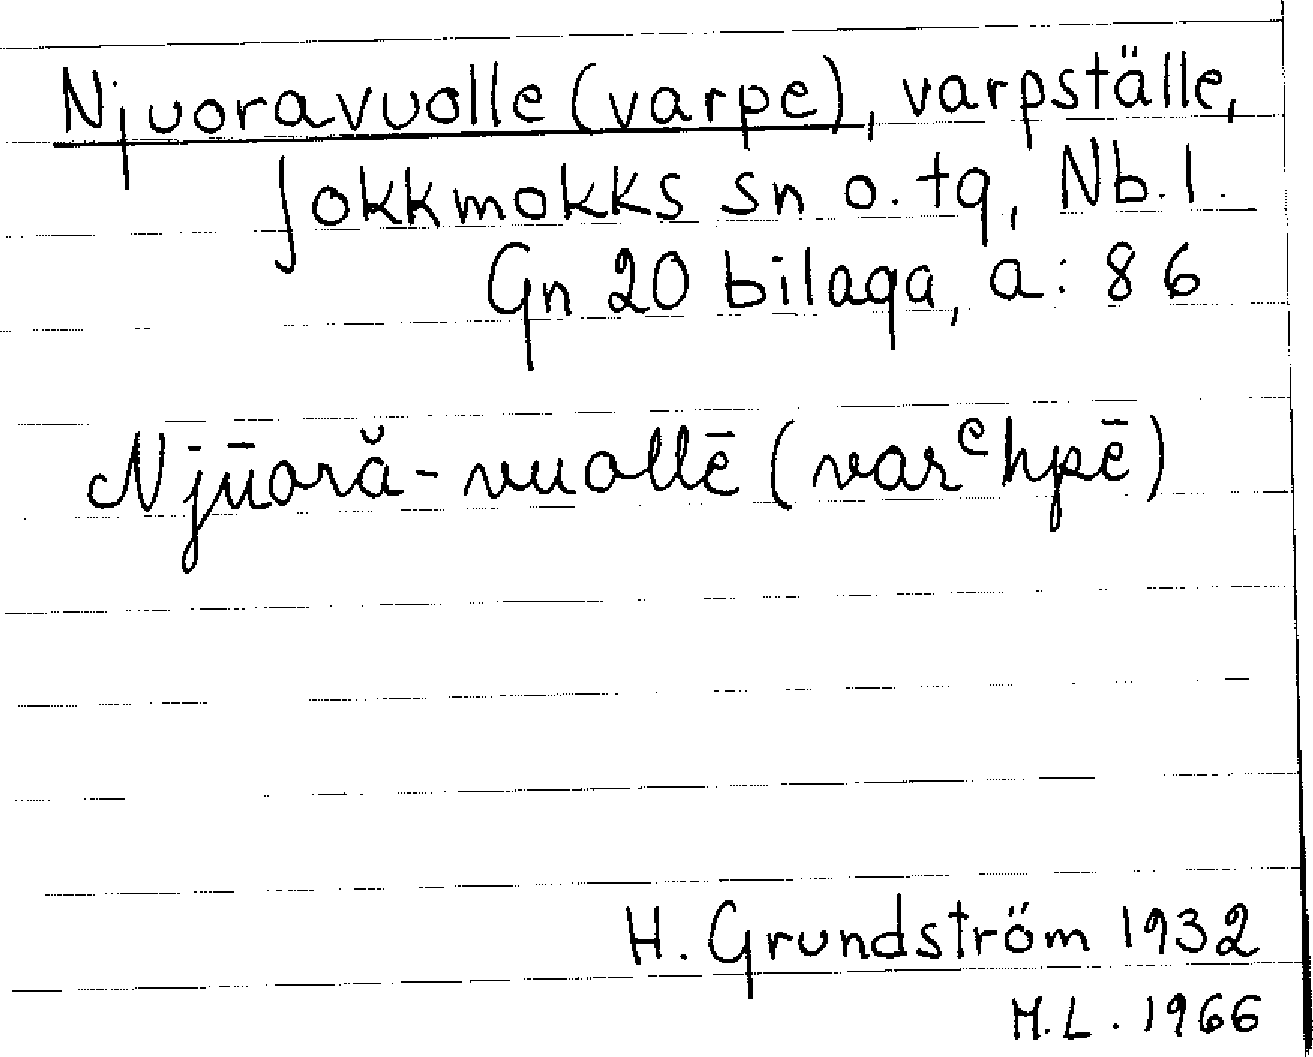 Njuoravuolle (varpe), varpställe,
Jokkmokks sn o. tg, Nb. l.
Gn 20 bilaga, a: 86
Njūoră-vuollē (varᵉhpē)
H. Grundström 1932
M.L. 1966